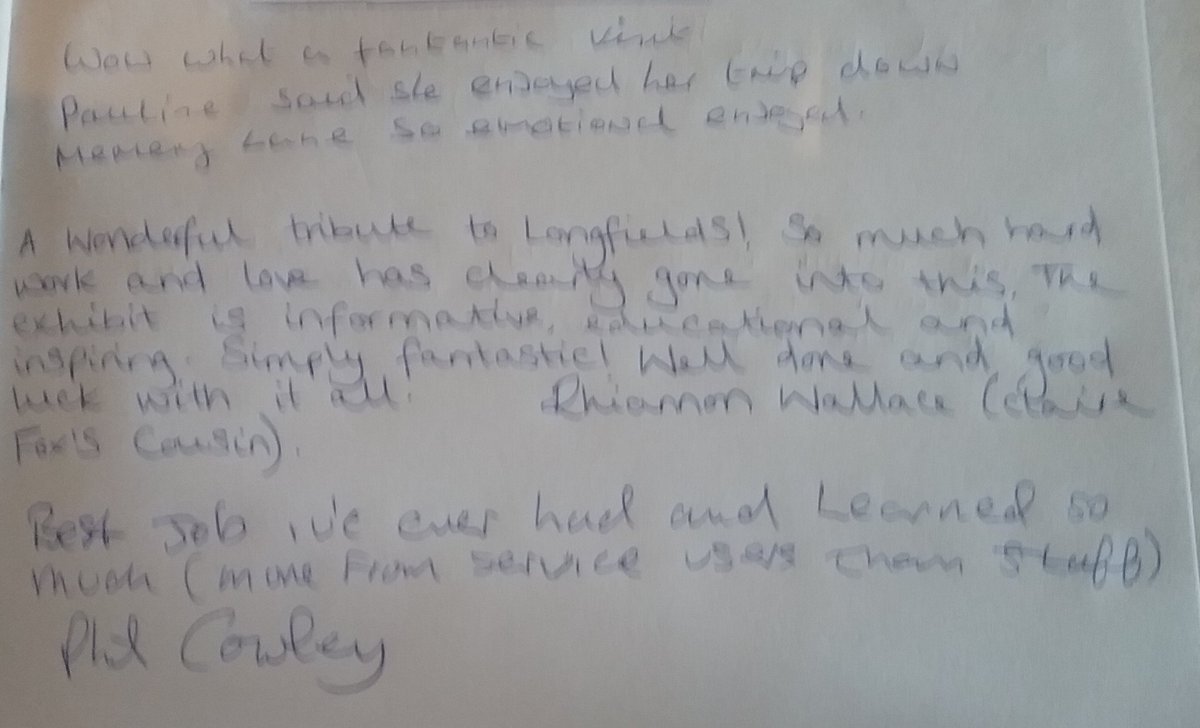 Wow what a fantantic visit
Pauline said she enjoyed her trip down
Memory Lane so emotional enjoyed.
A wonderful tribute to Longfields! So much hard
work and love has clearly gone into this. The
exhibit is informative, educational and
inspiring. Simply fantastic! Well done and good
luck with it all. Rhiannon Wallace (Claire
Fox's Cousin).
Best Job i've ever had and Learned so
much (more From service users than Staff)
Phil Cowley